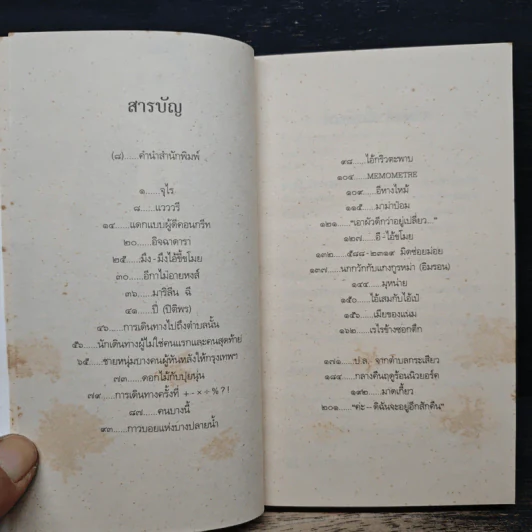 สารบัญ
(๘)......คำนำสำนักพิมพ์
๑......จุไร
๘......แวววรี
๑๔......แดกแบบผู้ดีตอนกรีท
๒๐......อิจฉาดารา
๒๕......มึง - มึงไอ้ขี้ขโมย
๓๐......อีกาไม่อายหงส์
๓๖......มาริลีน ฉี
๔๑......ปี่ (ปีติพร)
๔๖......การเดินทางไปถึงตำบลนั้น
๕๖......นักเดินทางผู้ไม่ใช่คนแรกและคนสุดท้าย
๖๕......ชายหนุ่มบางคนผู้หันหลังให้กรุงเทพฯ
๗๓......ดอกไม้กับปุยนุ่น
๗๙......การเดินทางครั้งที่ + - × ÷ % ? !
๘๗......คนบางนี้
๙๓......กาวบอยแห่งบางปลายน้ำ
๙๘......ไอ้กริวตะพาบ
๑๐๔......MEMOMETRE
๑๐๙......อีหางไหม้
๑๑๕......มาม่าป๋อม
๑๒๑......"เอาผัวดีกว่าอยู่เปลี่ยว..."
๑๒๗......อี - ไอ้ขโมย
๑๓๒......๕๘๘ - ๒๓๑๙ มิดซ่อยม่อย
๑๓๗......นกกวักกับแกงกูรหม่า (อิมรอน)
๑๔๔......มุหน่าย
๑๕๐......ไอ้เสมกับไอ้เป๋
๑๕๖......เมียของแน่ม
๑๖๒......เรไรข้างซอกตึก
๑๗๑......ป.ล. จากตำบลกระเสียว
๑๘๔......กลางคืนฤดูร้อนนิวยอร์ค
๑๙๒......มาดเกี้ยว
๒๐๑......"ค่ะ – ดิฉันจะอยู่อีกสักคืน"